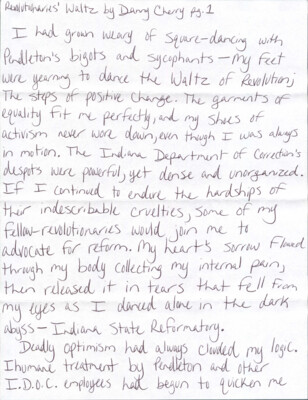 Revolutionaries' Waltz by Danny Cherry pg.1
I had grown weary of square-dancing with
Pendleton's bigots and sycophants — my feet
were yearning to dance the Waltz of Revolution;
The steps of positive change. The garments of
equality fit me perfectly, and my shoes of
activism never wore down, even though I was always
in motion. The Indiana Department of Correction's
despots were powerful, yet dense and unorganized.
If I continued to endure the hardships of
their indescribable cruelties, some of my
fellow-revolutionaries would join me to
advocate for reform. My heart's sorrow flowed
through my body collecting my internal pain,
then released it in tears that fell from
my eyes as I danced alone in the dark
abyss — Indiana State Reformatory.
Deadly optimism had always clouded my logic.
Ihumane treatment by Pendleton and other
I.D.O.C. employees had begun to quicken me